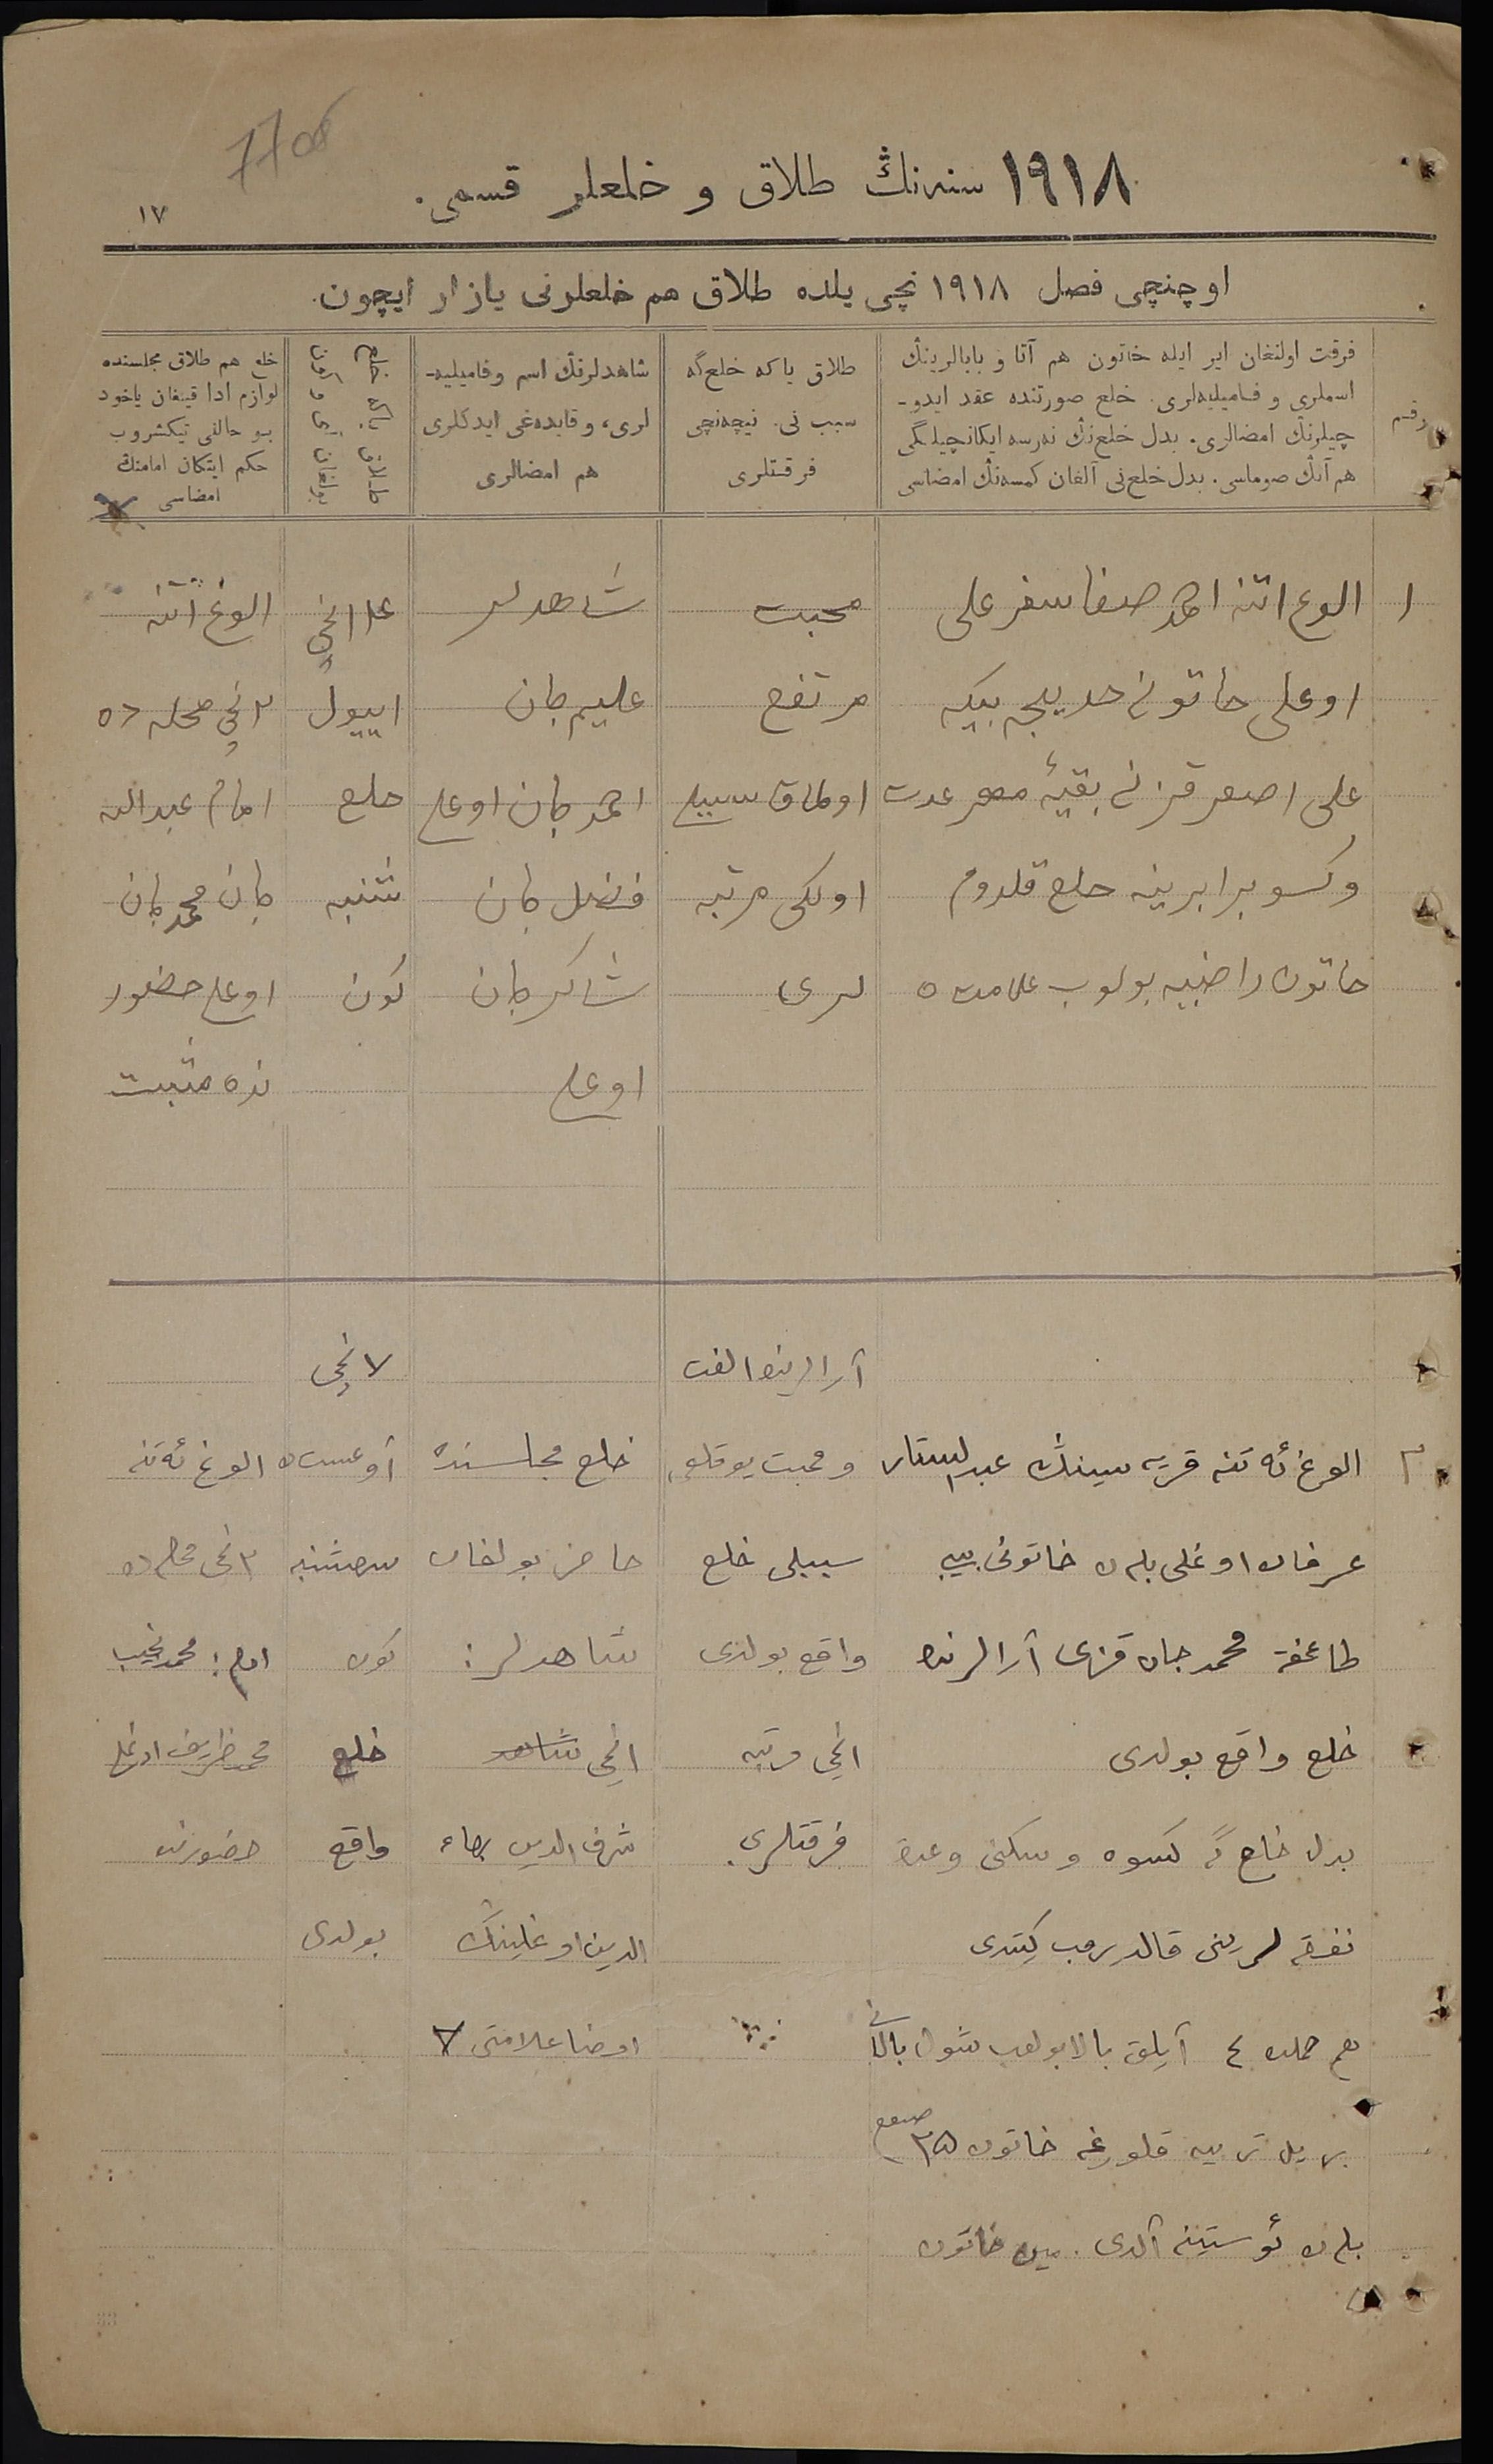 ١٩١٨ سنه‌نڭ طلاق و خلعلر قسمی.
١٧
اوچنچی فصل ١٩١٨ نچی یلده طلاق هم خلعلرنی یازار ایچون.
رقم
فرقت اولنغان ایر ایله خاتون هم آتا و بابالرینڭ
اسملری و فامیلیه‌لری. خلع صورتنده عقد ایدو-
چیلرنڭ امضالری. بدل خلع‌نڭ نه‌رسه ایکانچیلگی
هم آنڭ صوماسی. بدل خلع‌نی آلغان کمسه‌نڭ امضاسی
طلاق یاکه خلع‌گه
سبب نی. نیچه‌نچی
فرقتلری
شاهدلرنڭ اسم و فامیلیه-
لری، و قایده‌غی ایدکلری
هم امضالری
خلع هم طلاق مجلسنده
لوازم ادا قیلغان یاخود
بو حالنی تیکشروب
حکم ایتکان امامنڭ
امضاسی
١
الوغ اتنه احمد صفا سفر علی
اوغلی خاتونی خدیجه بیکه
علی اصغر قزنی بقیهٔ مهر عدت
و کسو برابرینه خلع قلدوم
خاتون راضیه بولوب علامت ٥
محبت
مرتفع
اولماق سببلی
اولکی مرتبه
لری
شاهدلر
علیم جان
احمد جان اوغلی
فضل جان
شاکر جان
اوغلی
اییول
خلع
شنبه
کون
الوغ اتنه
٢ نچی محله ده
امام عبدالله
جان محمد جان
اوغلی حضور
نده مثبت
٢
الوغ ئه تنه قریه سینڭ عبدالستار
عرفان اوغلی بله ن خاتونی بیبی
محمد جان قزی آرالرنده
خلع واقع بولدی
بدل خلع گه کسوه و سکنی و عدة
نفقه لرینی قالدروب کیتدی
هم حمله ٤ آیلق بالا بولوب شول بالانی
بر یل تربیه قلورغه خاتون ٢٥
بله ن ئوستینه آلدی. مین خاتون
آرالرینده الفت
و محبت یوقلغی
سببلی خلع
واقع بولدی
انچی مرتبه
فرقتلری
خلع مجلسنده
حاضر بولغان
شاهدلر:
انچی شاهد
شرف الدین بهاء
الدین اوغلینڭ
امضا علامتی
٧ نچی
آوغست ده
سه شنبه
کون
خلع
واقع
بولدی
الوغ ئه تنه
٢ نچی محله ده
امام: محمد نجیب
محمد ظریف اوغلی
حضورنده